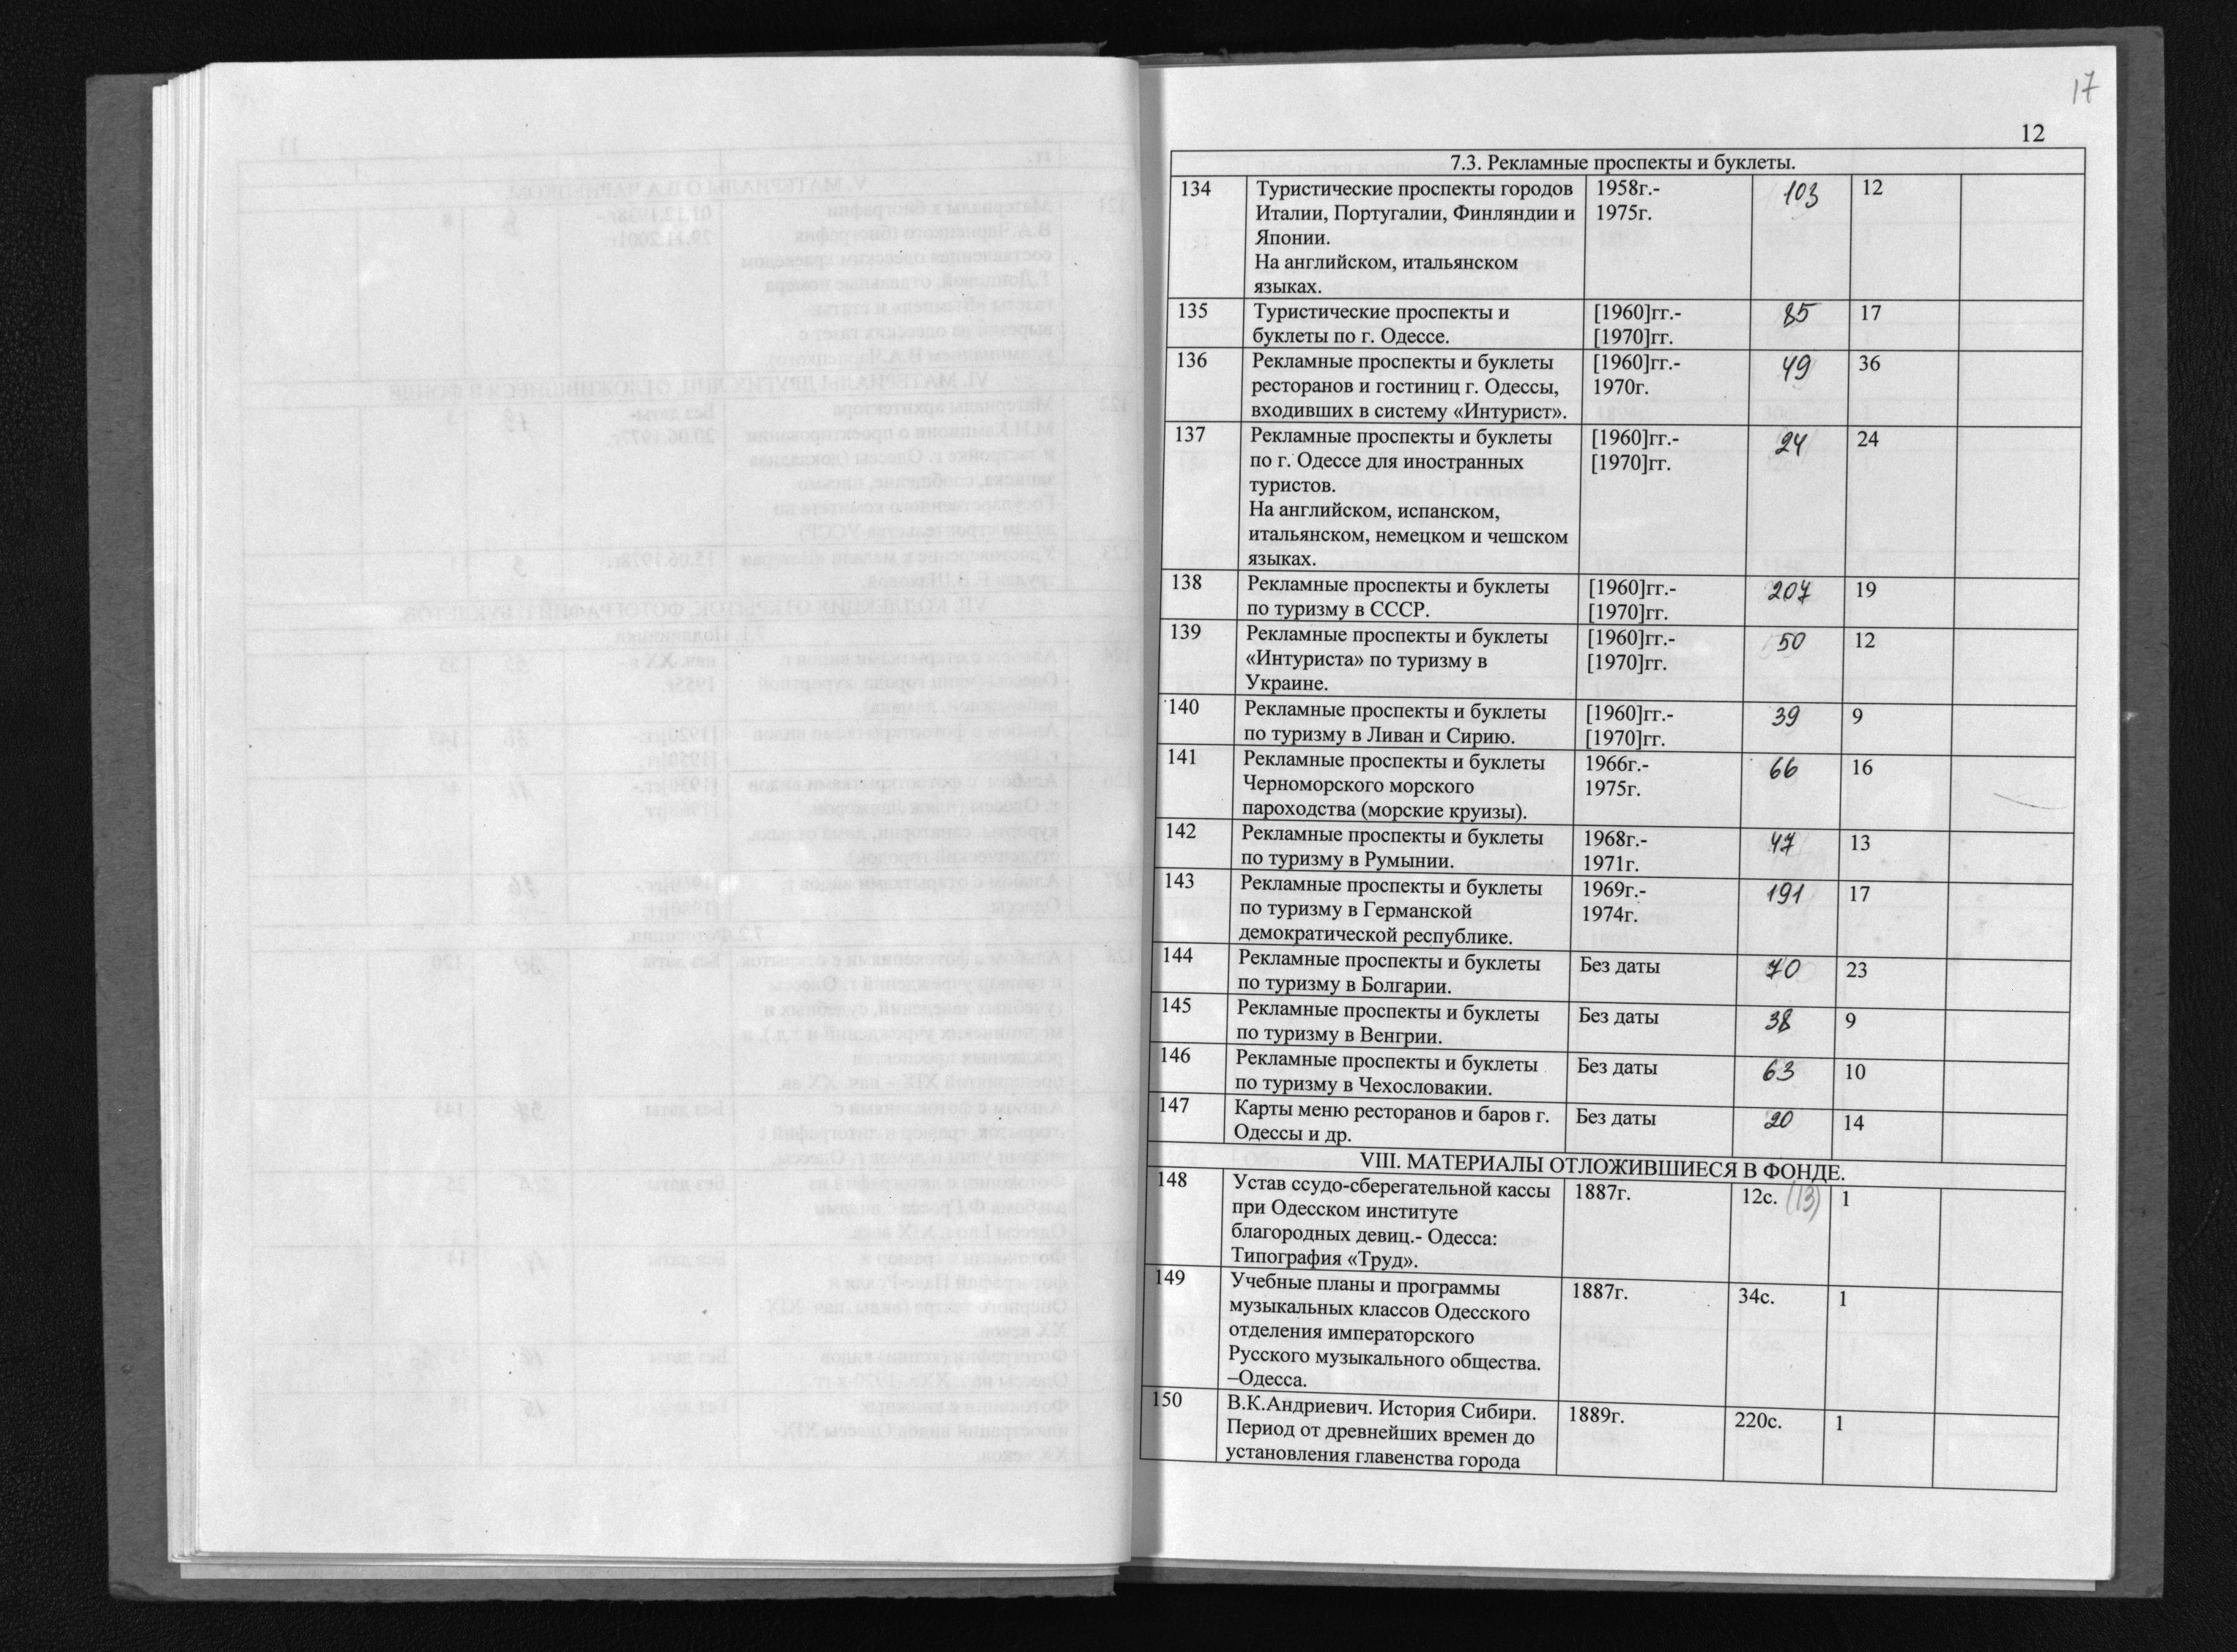 17
12
7.3. Рекламные проспекты и буклеты.
134 Туристические проспекты городов 1958г.- 103 12
Италии, Португалии, Финляндии и 1975г.
Японии.
На английском, итальянском
языках.
135 Туристические проспекты и [1960]гг.- 85 17
буклеты по г. Одессе. [1970]гг.
136 Рекламные проспекты и буклеты [1960]гг.- 49 36
ресторанов и гостиниц г. Одессы, 1970г.
входивших в систему «Интурист».
137 Рекламные проспекты и буклеты [1960]гг.- 24 24
по г. Одессе для иностранных [1970]гг.
туристов.
На английском, испанском,
итальянском, немецком и чешском
языках.
138 Рекламные проспекты и буклеты [1960]гг.- 207 19
по туризму в СССР. [1970]гг.
139 Рекламные проспекты и буклеты [1960]гг.- 50 12
«Интуриста» по туризму в [1970]гг.
Украине.
140 Рекламные проспекты и буклеты [1960]гг.- 39 9
по туризму в Ливан и Сирию. [1970]гг.
141 Рекламные проспекты и буклеты 1966г.- 66 16
Черноморского морского 1975г.
пароходства (морские круизы).
142 Рекламные проспекты и буклеты 1968г.- 47 13
по туризму в Румынии. 1971г.
143 Рекламные проспекты и буклеты 1969г.- 191 17
по туризму в Германской 1974г.
демократической республике.
144 Рекламные проспекты и буклеты Без даты 70 23
по туризму в Болгарии.
145 Рекламные проспекты и буклеты Без даты 38 9
по туризму в Венгрии.
146 Рекламные проспекты и буклеты Без даты 63 10
по туризму в Чехословакии.
147 Карты меню ресторанов и баров г. Без даты 20 14
Одессы и др.
VIII. МАТЕРИАЛЫ ОТЛОЖИВШИЕСЯ В ФОНДЕ.
148 Устав ссудо-сберегательной кассы 1887г. 12с. (13) 1
при Одесском институте
благородных девиц.- Одесса:
Типография «Труд».
149 Учебные планы и программы 1887г. 34с. 1
музыкальных классов Одесского
отделения императорского
Русского музыкального общества.
–Одесса.
150 В.К.Андриевич. История Сибири. 1889г. 220с. 1
Период от древнейших времен до
установления главенства города